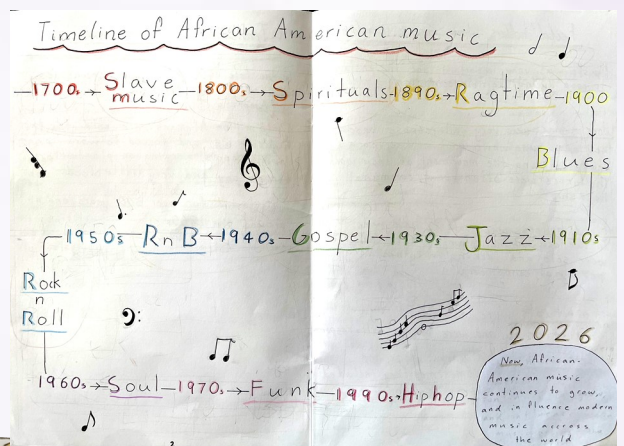 Timeline of African American music
1700s Slave music 1800s Spirituals 1890s Ragtime 1900
Blues
1910s Jazz 1930s Gospel 1940s RnB 1950s
Rock
n
Roll
1960s Soul 1970s Funk 1990s Hiphop
2026
New, African-
American music
continues to grow,
and influence modern
music accross
the world